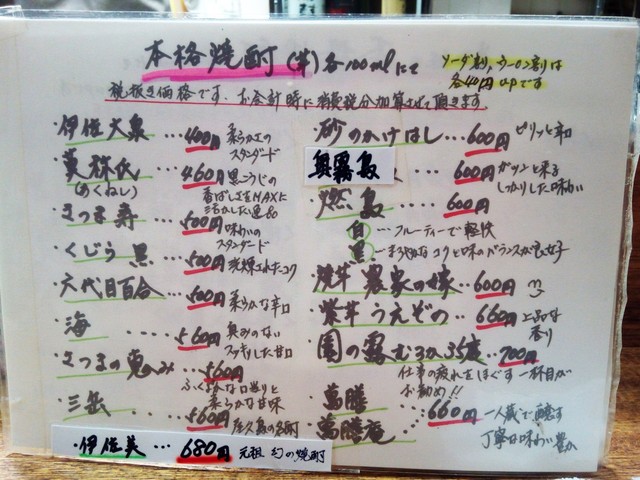 本格焼酎(芋)各100mlにて
ソーダ割り,ウーロン割りは
各40円upです
税抜き価格です。お会計時に消費税分加算させて頂きます
伊佐大泉…400円 柔らか口の
スタンダード
莫祢氏…460円 黒こうじの
(あくねし) 香ばしさをMAXに
活かした逸品
さつま寿…500円 味わいの
スタンダード
くじら黒…500円 洗練されたコク
六代目百合…500円 柔らかな辛口
海…560円 臭みのない
スッキリした甘口
さつまの恵み…560円
ふくよかな口当りと
柔らかな甘味
三岳…560円 屋久島の名酎
伊佐美…680円 元祖 幻の焼酎
砂のかけはし…600円 ピリッと辛口
奥霧島 600円 ガツンと来る
しっかりした味わい
燃島…600円
白…フルーティーで軽快
黒…まろやかなコクと味のバランスが良好
焼芋 農家の嫁…600円
紫芋 うえぞの…660円 上品な
香り
園の露 むろか35度…700円
仕事の疲れをほぐす一杯目が
お勧め!!
萬膳
萬膳庵…660円 一人蔵で醸す
丁寧な味わい豊か